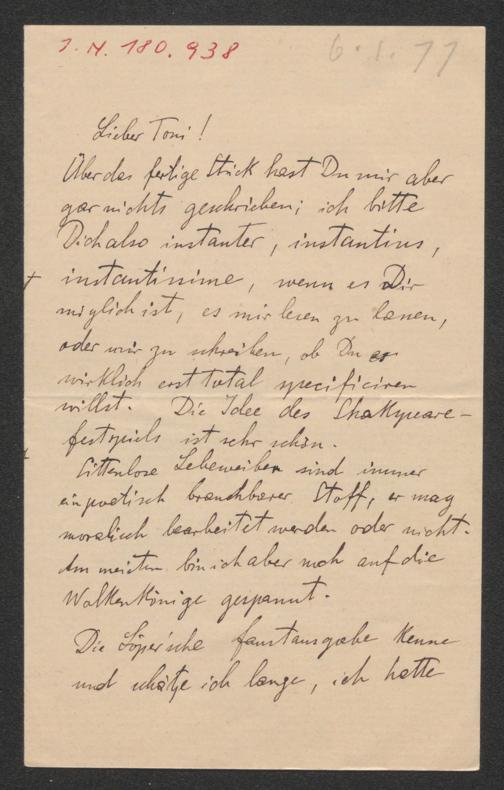 J. N. 180.938
6.1.77
Lieber Toni!
Über das fertige Stück hast Du mir aber
gar nichts geschrieben; ich bitte
Dich also instanter, instantius,
instantissime, wenn es Dir
möglich ist, es mir lesen zu lassen,
oder mir zu schreiben, ob Du es
wirklich erst total specificiren
willst. Die Idee des Shakspeare-
festspiels ist sehr schön.
Sittenlose Lebeweiber sind immer
ein poetisch brauchbarer Stoff, er mag
moralisch bearbeitet werden oder nicht.
Am meisten bin ich aber noch auf die
Wolkenkönige gespannt.
Die Löper'sche Faustausgabe kenne
und schätze ich lange, ich hatte